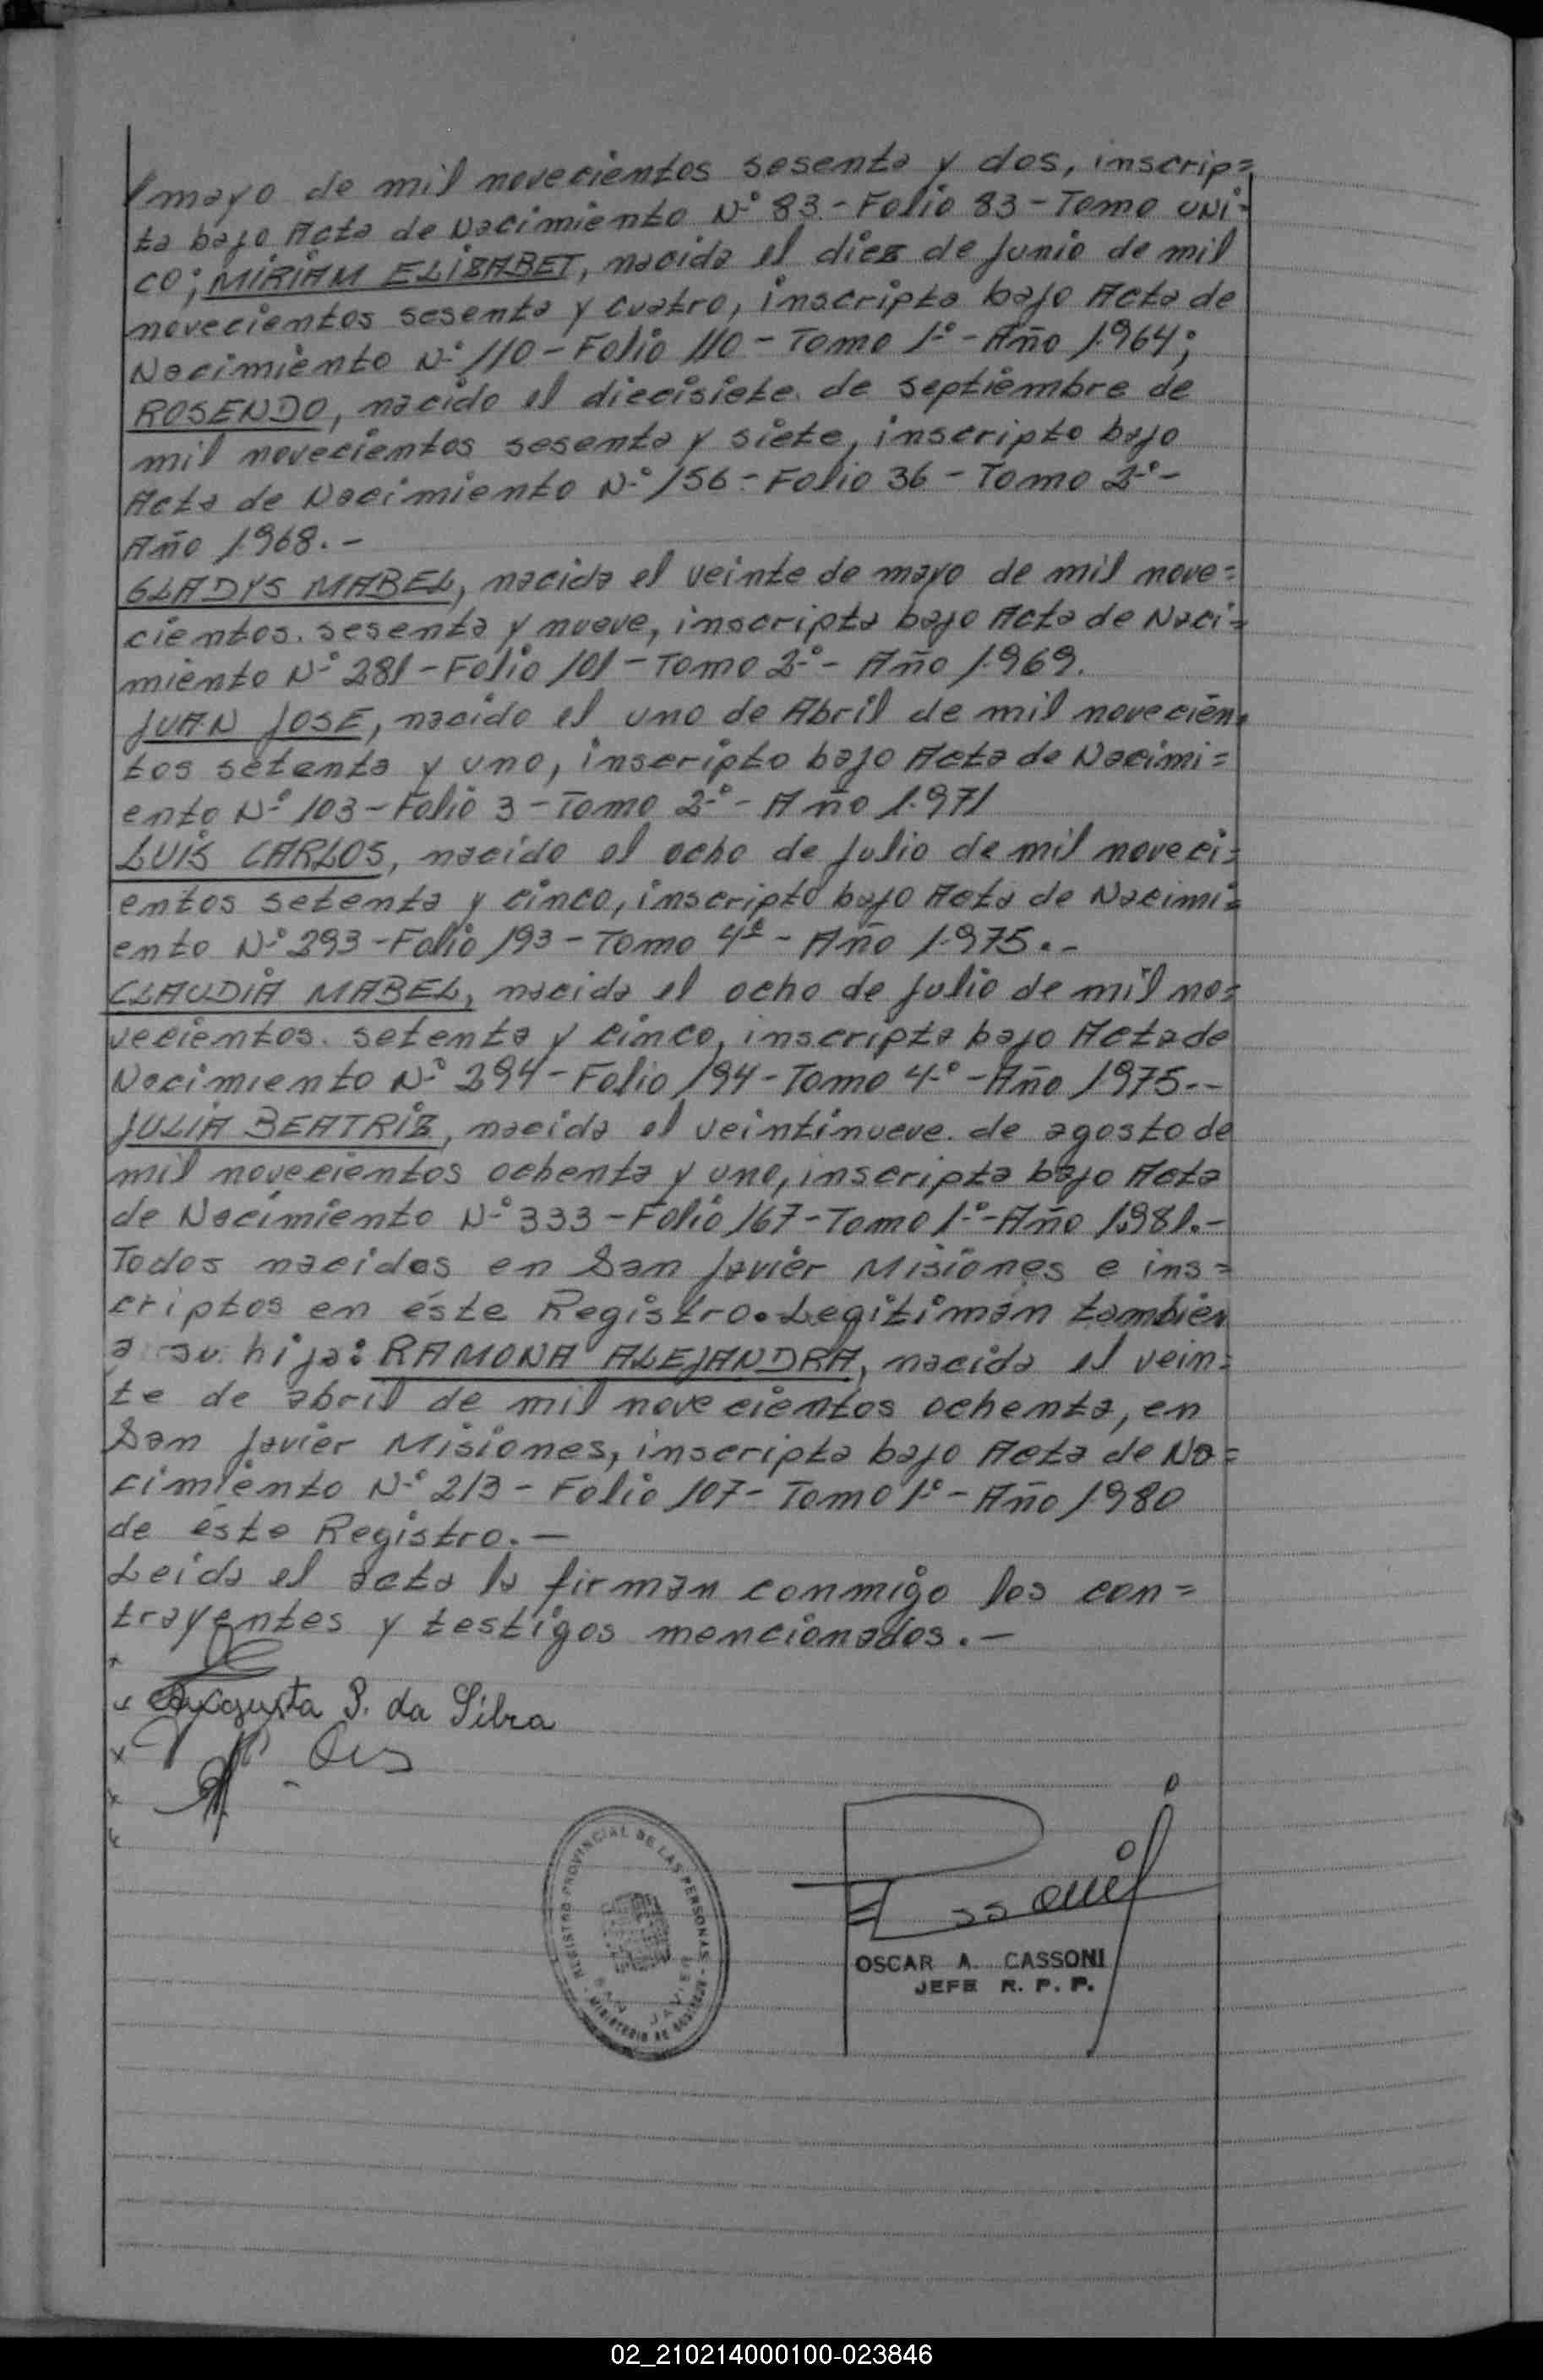 mayo de mil novecientos sesenta y dos, inscrip=
ta bajo Acta de Nacimiento Nº 83 - Folio 83 - Tomo UNI=
CO; MIRIAM ELIZABET, nacida el diez de Junio de mil
novecientos sesenta y cuatro, inscripta bajo Acta de
Nacimiento Nº 110 - Folio 110 - Tomo 1º - Año 1.964;
ROSENDO, nacido el diecisiete de septiembre de
mil novecientos sesenta y siete, inscripto bajo
Acta de Nacimiento Nº 156 - Folio 36 - Tomo 2º -
Año 1.968. -
GLADYS MABEL, nacida el veinte de mayo de mil nove=
cientos sesenta y nueve, inscripta bajo Acta de Naci=
miento Nº 281 - Folio 101 - Tomo 2º - Año 1.969.
JUAN JOSE, nacido el uno de Abril de mil novecien=
tos setenta y uno, inscripto bajo Acta de Nacimi=
ento Nº 103 - Folio 3 - Tomo 2º - Año 1.971
LUIS CARLOS, nacido el ocho de Julio de mil noveci=
entos setenta y cinco, inscripto bajo Acta de Nacimi=
ento Nº 293 - Folio 193 - Tomo 4º - Año 1.975. -
CLAUDIA MABEL, nacida el ocho de Julio de mil no=
vecientos setenta y cinco, inscripta bajo Acta de
Nacimiento Nº 294 - Folio 194 - Tomo 4º - Año 1975.-
JULIA BEATRIZ, nacida el veintinueve de agosto de
mil novecientos ochenta y uno, inscripta bajo Acta
de Nacimiento Nº 333 - Folio 167 - Tomo 1º - Año 1.981.-
Todos nacidos en San Javier Misiones e ins=
criptos en éste Registro. Legitiman también
a su hija: RAMONA ALEJANDRA, nacida el vein=
te de abril de mil novecientos ochenta, en
San Javier Misiones, inscripta bajo Acta de Na=
cimiento Nº 213 - Folio 107 - Tomo 1º - Año 1.980
de éste Registro. -
Leida el acta la firman conmigo los con=
trayentes y testigos mencionados. -
Augusta P. da Silva
REGISTRO PROVINCIAL DE LAS PERSONAS - MINISTERIO DE GOBIERNO
SAN JAVIER
OSCAR A. CASSONI
JEFE R. P. P.
02_210214000100-023846